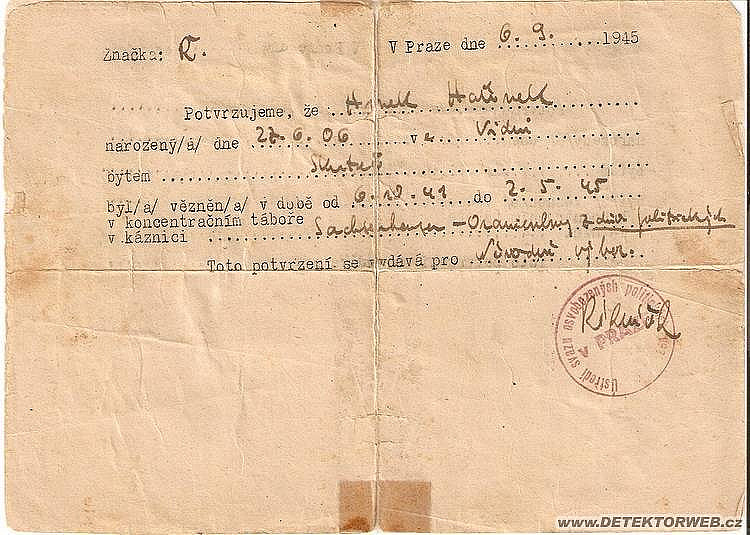 Značka: R.
V Praze dne 6.9. 1945
Potvrzujeme, že Hašek
narozený/á/ dne 27.6.06 v e Vídni
bytem Skuteč
byl/a/ vězněn/a/ v době od 6.12.41 do 2.5.45
v koncentračním táboře
v káznici Sachsenhausen - Oranienburg z dův. politických
Toto potvrzení se vydává pro Národní výbor.
Ústředí svazu osvobozených politických
V PRAZE
www.DETEKTORWEB.cz